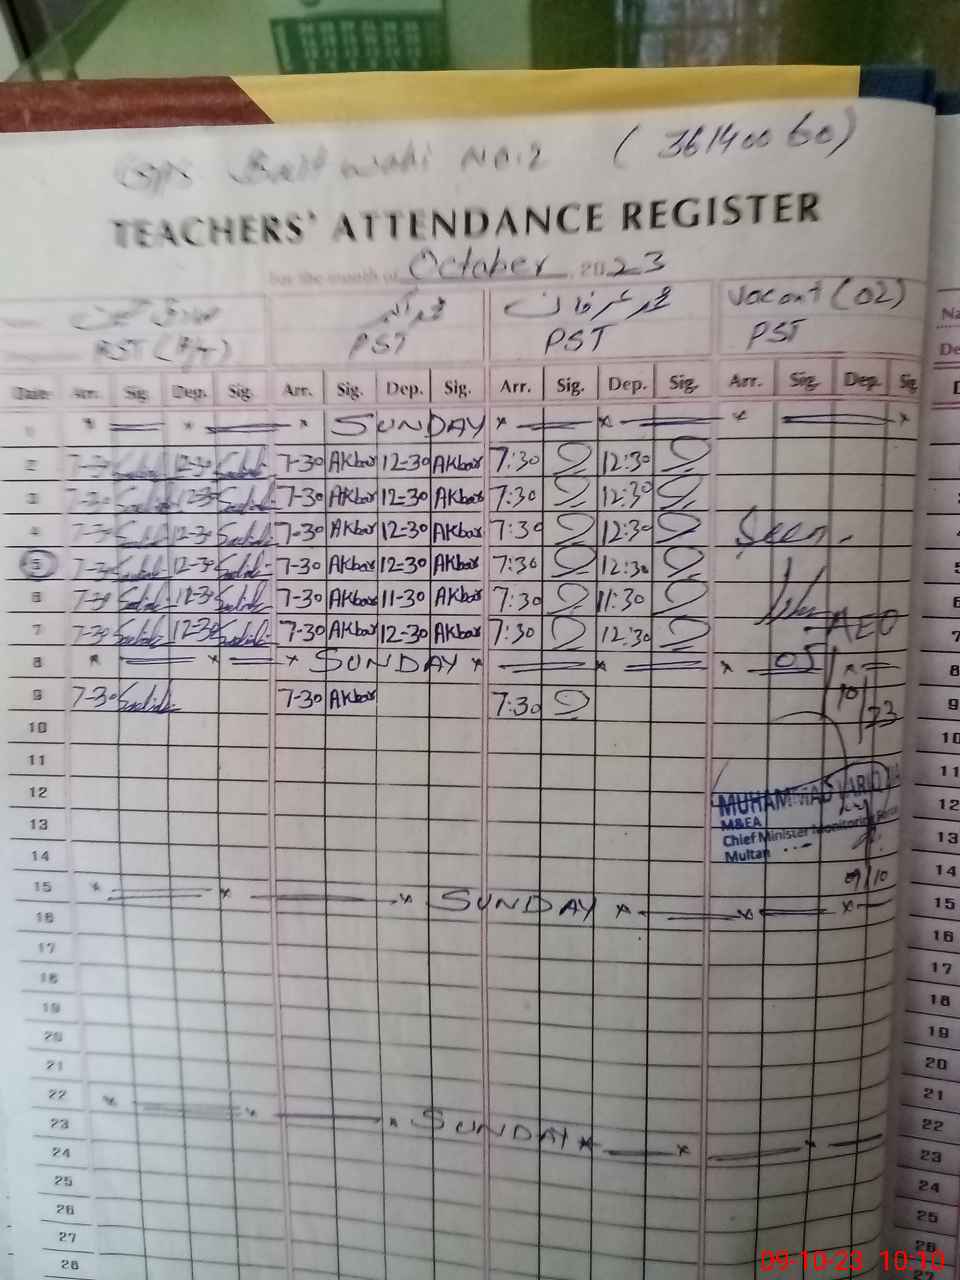 GPS Basti Wahi NO.2 (36140060)
TEACHERS' ATTENDANCE REGISTER
For the month of October 2023
محمد اکبر محمد عرفان Vacant (02)
PST PST PST
Date Arr. Sig. Dep. Sig. Arr. Sig. Dep. Sig. Arr. Sig. Dep. Sig. Arr. Sig. Dep. Sig.
1 SUNDAY
2 7-30 12-30 7-30 Akbar 12-30 Akbar 7:30 12:30
3 7-30 12-30 7-30 Akbar 12-30 Akbar 7:30 12:30
4 7-30 12-30 7-30 Akbar 12-30 Akbar 7:30 12:30
Seen
5 7-30 12-30 7-30 Akbar 12-30 Akbar 7:30 12:30
6 7-30 11-30 7-30 Akbar 11-30 Akbar 7:30 11:30
AEO
7 7-30 12-30 7-30 Akbar 12-30 Akbar 7:30 12:30
8 SUNDAY 05/10/23
9 7-30 7-30 Akbar 7:30
10
11
12
MUHAMMAD
M&EA
13
Chief Minister Monitoring Force
Multan
14
09/10
15 SUNDAY
16
17
18
19
20
21
22 SUNDAY
23
24
25
26
27
28
Na
De
D
4
5
6
7
8
9
10
11
12
13
14
15
16
17
18
19
20
21
22
23
24
25
26
27
09-10-23 10:10